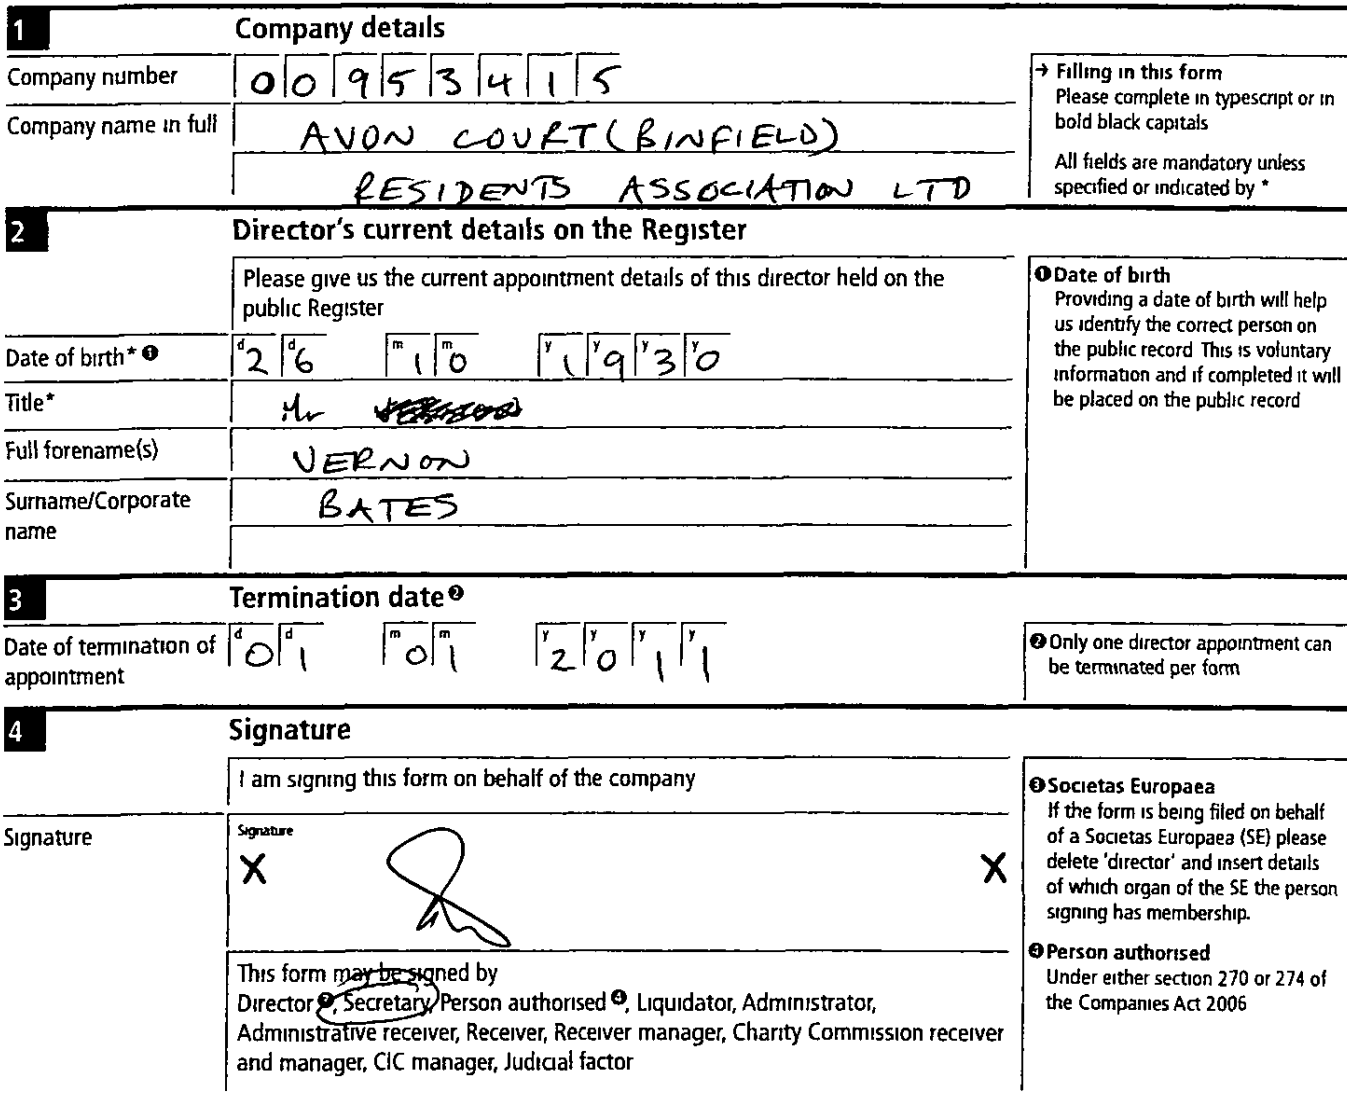 1 Company details
Company number 00953415
Company name in full AVON COURT (BINFIELD)
RESIDENTS ASSOCIATION LTD
→ Filling in this form
Please complete in typescript or in
bold black capitals
All fields are mandatory unless
specified or indicated by *
2 Director's current details on the Register
Please give us the current appointment details of this director held on the
public Register
Date of birth* ❶ d2 d6 m1 m0 y1 y9 y3 y0
Title* Mr
Full forename(s) VERNON
Surname/Corporate
name
BATES
❶ Date of birth
Providing a date of birth will help
us identify the correct person on
the public record This is voluntary
information and if completed it will
be placed on the public record
3 Termination date ❷
Date of termination of
appointment
d0 d1 m0 m1 y2 y0 y1 y1
❷ Only one director appointment can
be terminated per form
4 Signature
I am signing this form on behalf of the company
Signature
Signature
X X
This form may be signed by
Director ❸, Secretary, Person authorised ❹, Liquidator, Administrator,
Administrative receiver, Receiver, Receiver manager, Charity Commission receiver
and manager, CIC manager, Judicial factor
❸ Societas Europaea
If the form is being filed on behalf
of a Societas Europaea (SE) please
delete 'director' and insert details
of which organ of the SE the person
signing has membership.
❹ Person authorised
Under either section 270 or 274 of
the Companies Act 2006